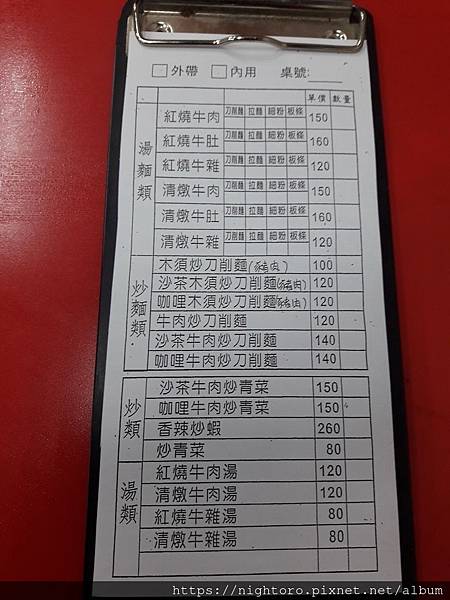 □外帶 □內用 桌號:
單價 數量
湯麵類
紅燒牛肉 刀削麵 拉麵 細粉 板條 150
紅燒牛肚 刀削麵 拉麵 細粉 板條 160
紅燒牛雜 刀削麵 拉麵 細粉 板條 120
清燉牛肉 刀削麵 拉麵 細粉 板條 150
清燉牛肚 刀削麵 拉麵 細粉 板條 160
清燉牛雜 刀削麵 拉麵 細粉 板條 120
炒麵類
木須炒刀削麵(豬肉) 100
沙茶木須炒刀削麵(豬肉) 120
咖哩木須炒刀削麵(豬肉) 120
牛肉炒刀削麵 120
沙茶牛肉炒刀削麵 140
咖哩牛肉炒刀削麵 140
炒類
沙茶牛肉炒青菜 150
咖哩牛肉炒青菜 150
香辣炒蝦 260
炒青菜 80
湯類
紅燒牛肉湯 120
清燉牛肉湯 120
紅燒牛雜湯 80
清燉牛雜湯 80
https://nightoro.pixnet.net/album